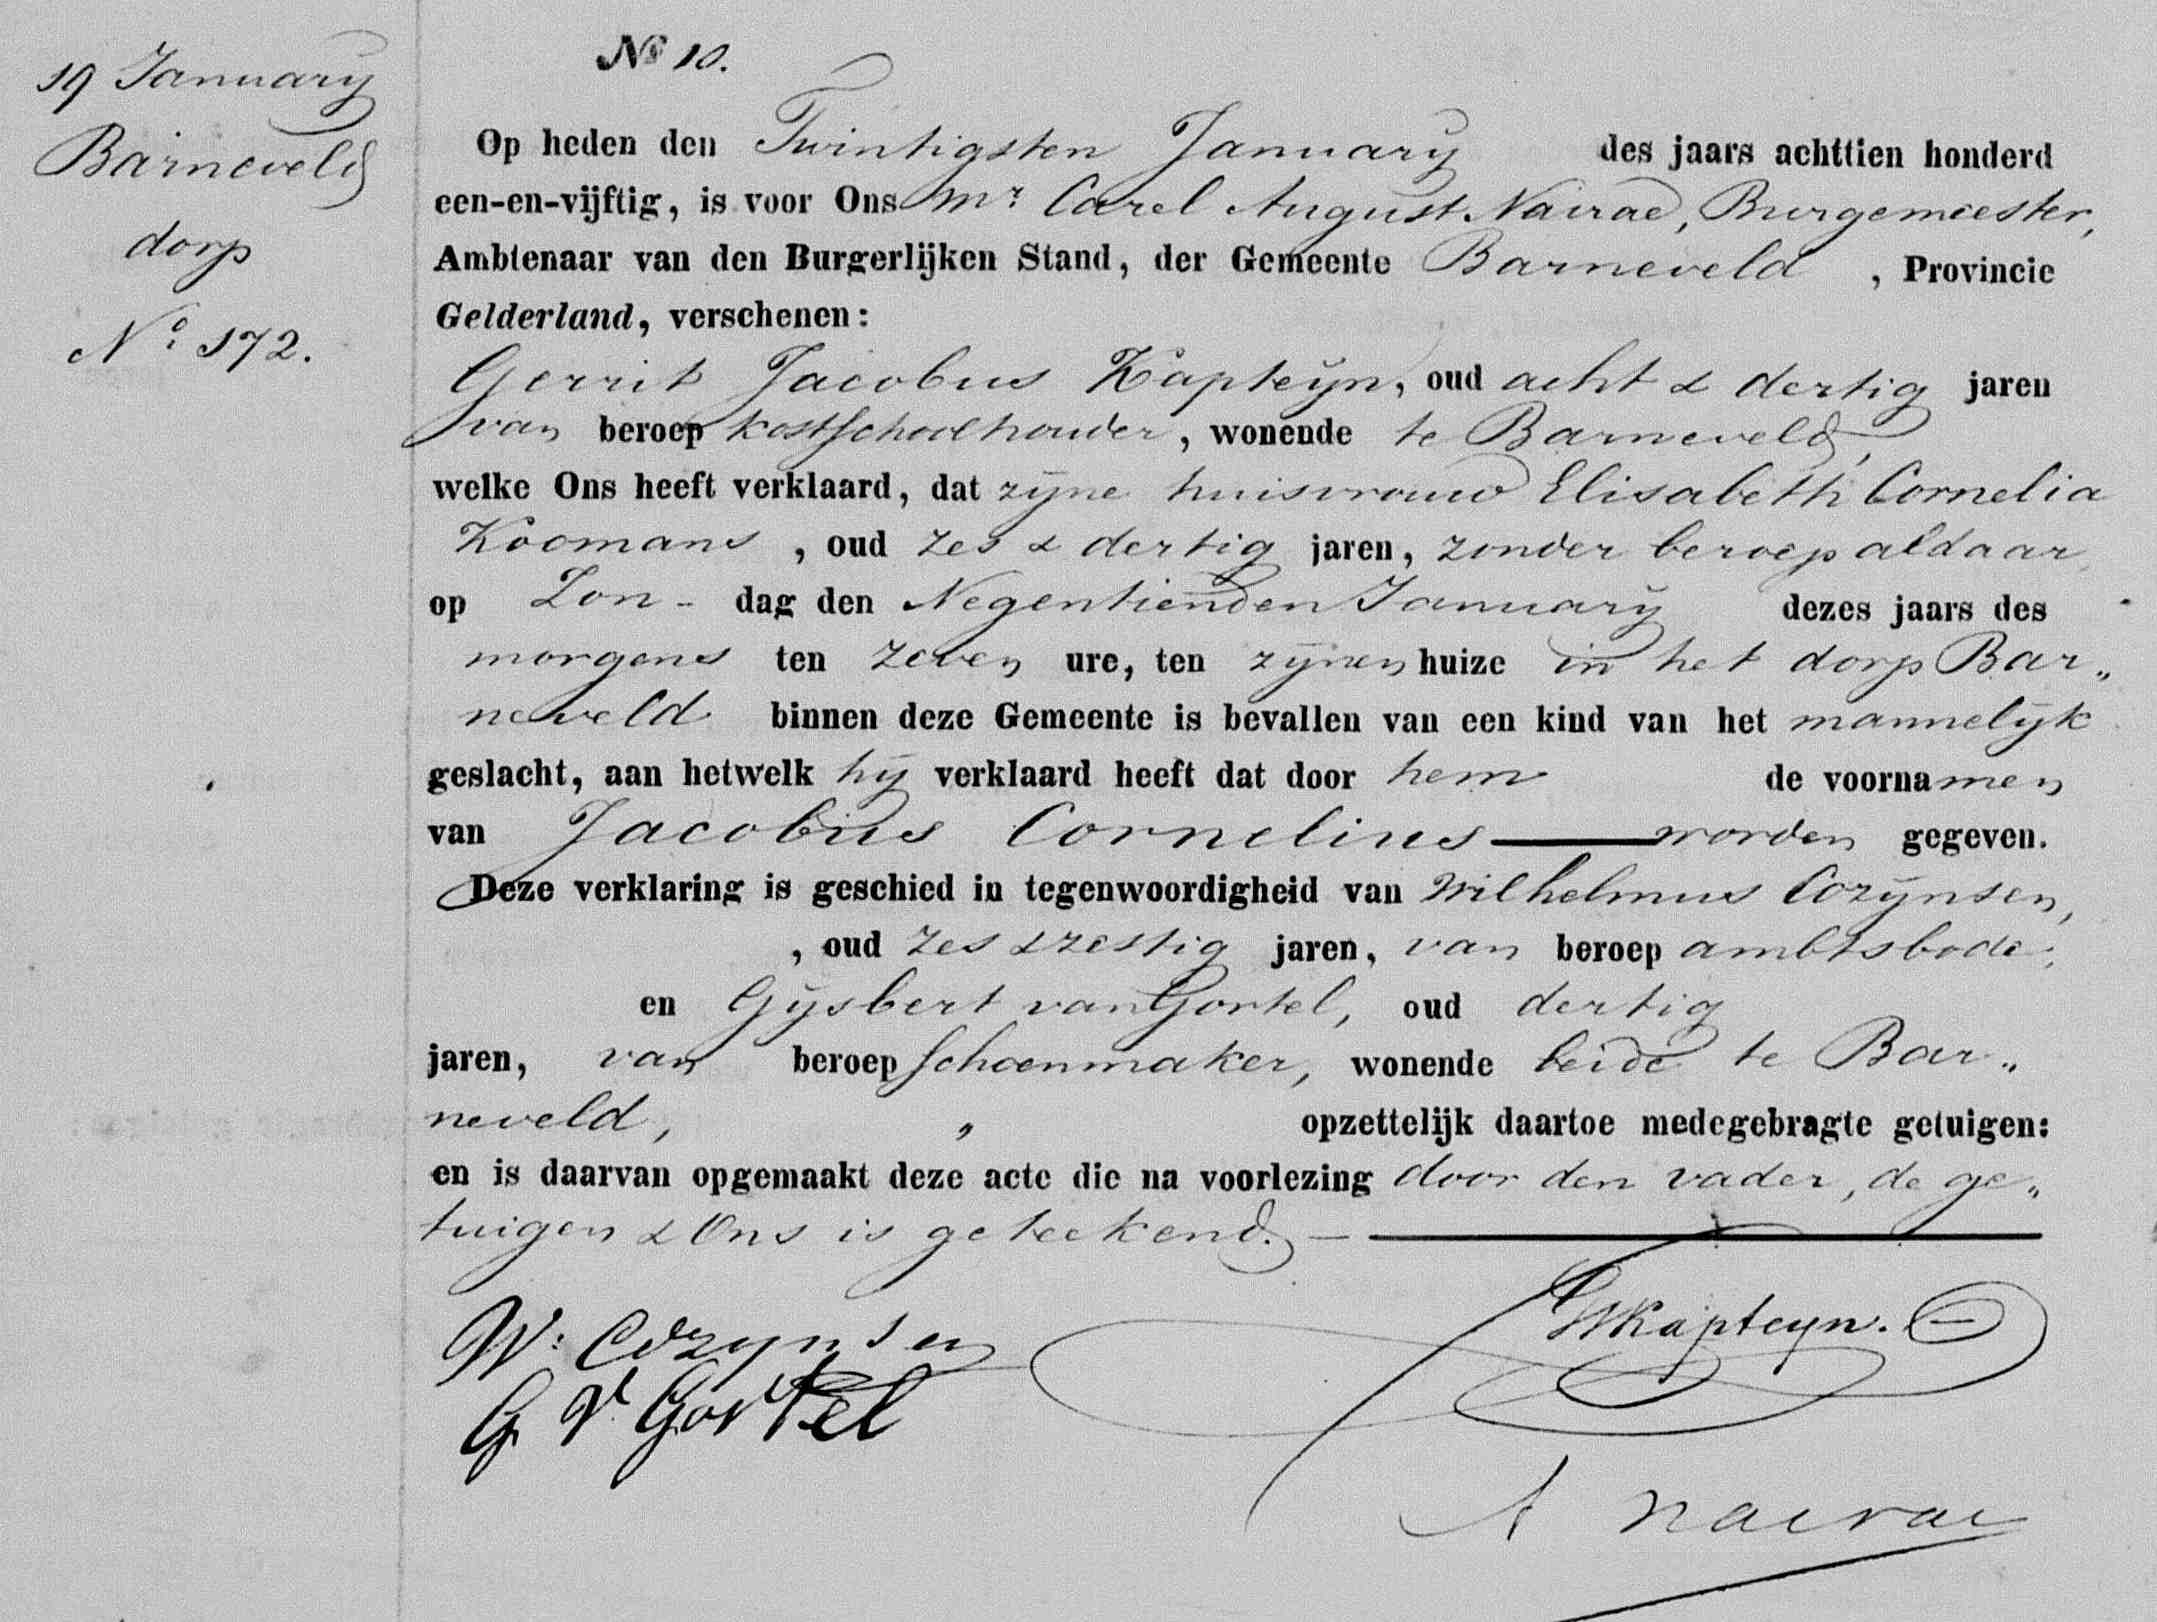 19 January
Barneveld
dorp
No. 172.
No 10.
Op heden den Twintigsten January des jaars achttien honderd
een-en-vijftig, is voor Ons Mr. Carel August Nairac, Burgemeester,
Ambtenaar van den Burgerlijken Stand, der Gemeente Barneveld, Provincie
Gelderland, verschenen:
Gerrit Jacobus Kapteyn, oud acht & dertig jaren
van beroep kostschoolhouder, wonende te Barneveld,
welke Ons heeft verklaard, dat zijne huisvrouw Elisabeth Cornelia
Koomans, oud zes & dertig jaren, zonder beroep aldaar
op Zon- dag den Negentienden January dezes jaars des
morgens ten zeven ure, ten zijnen huize in het dorp Bar„
neveld binnen deze Gemeente is bevallen van een kind van het mannelijk
geslacht, aan hetwelk hij verklaard heeft dat door hem de voornamen
van Jacobus Cornelius worden gegeven.
Deze verklaring is geschied in tegenwoordigheid van Wilhelmus Cozijnsen,
, oud zes & zestig jaren, van beroep ambtsbode,
en Gijsbert van Gortel, oud dertig
jaren, van beroep schoenmaker, wonende beide te Bar„
neveld, , opzettelijk daartoe medegebragte getuigen:
en is daarvan opgemaakt deze acte die na voorlezing door den vader, de ge„
tuigen & Ons is geteekend. —
W: Cozynsen
Kapteyn.
G V Gortel
A Nairac